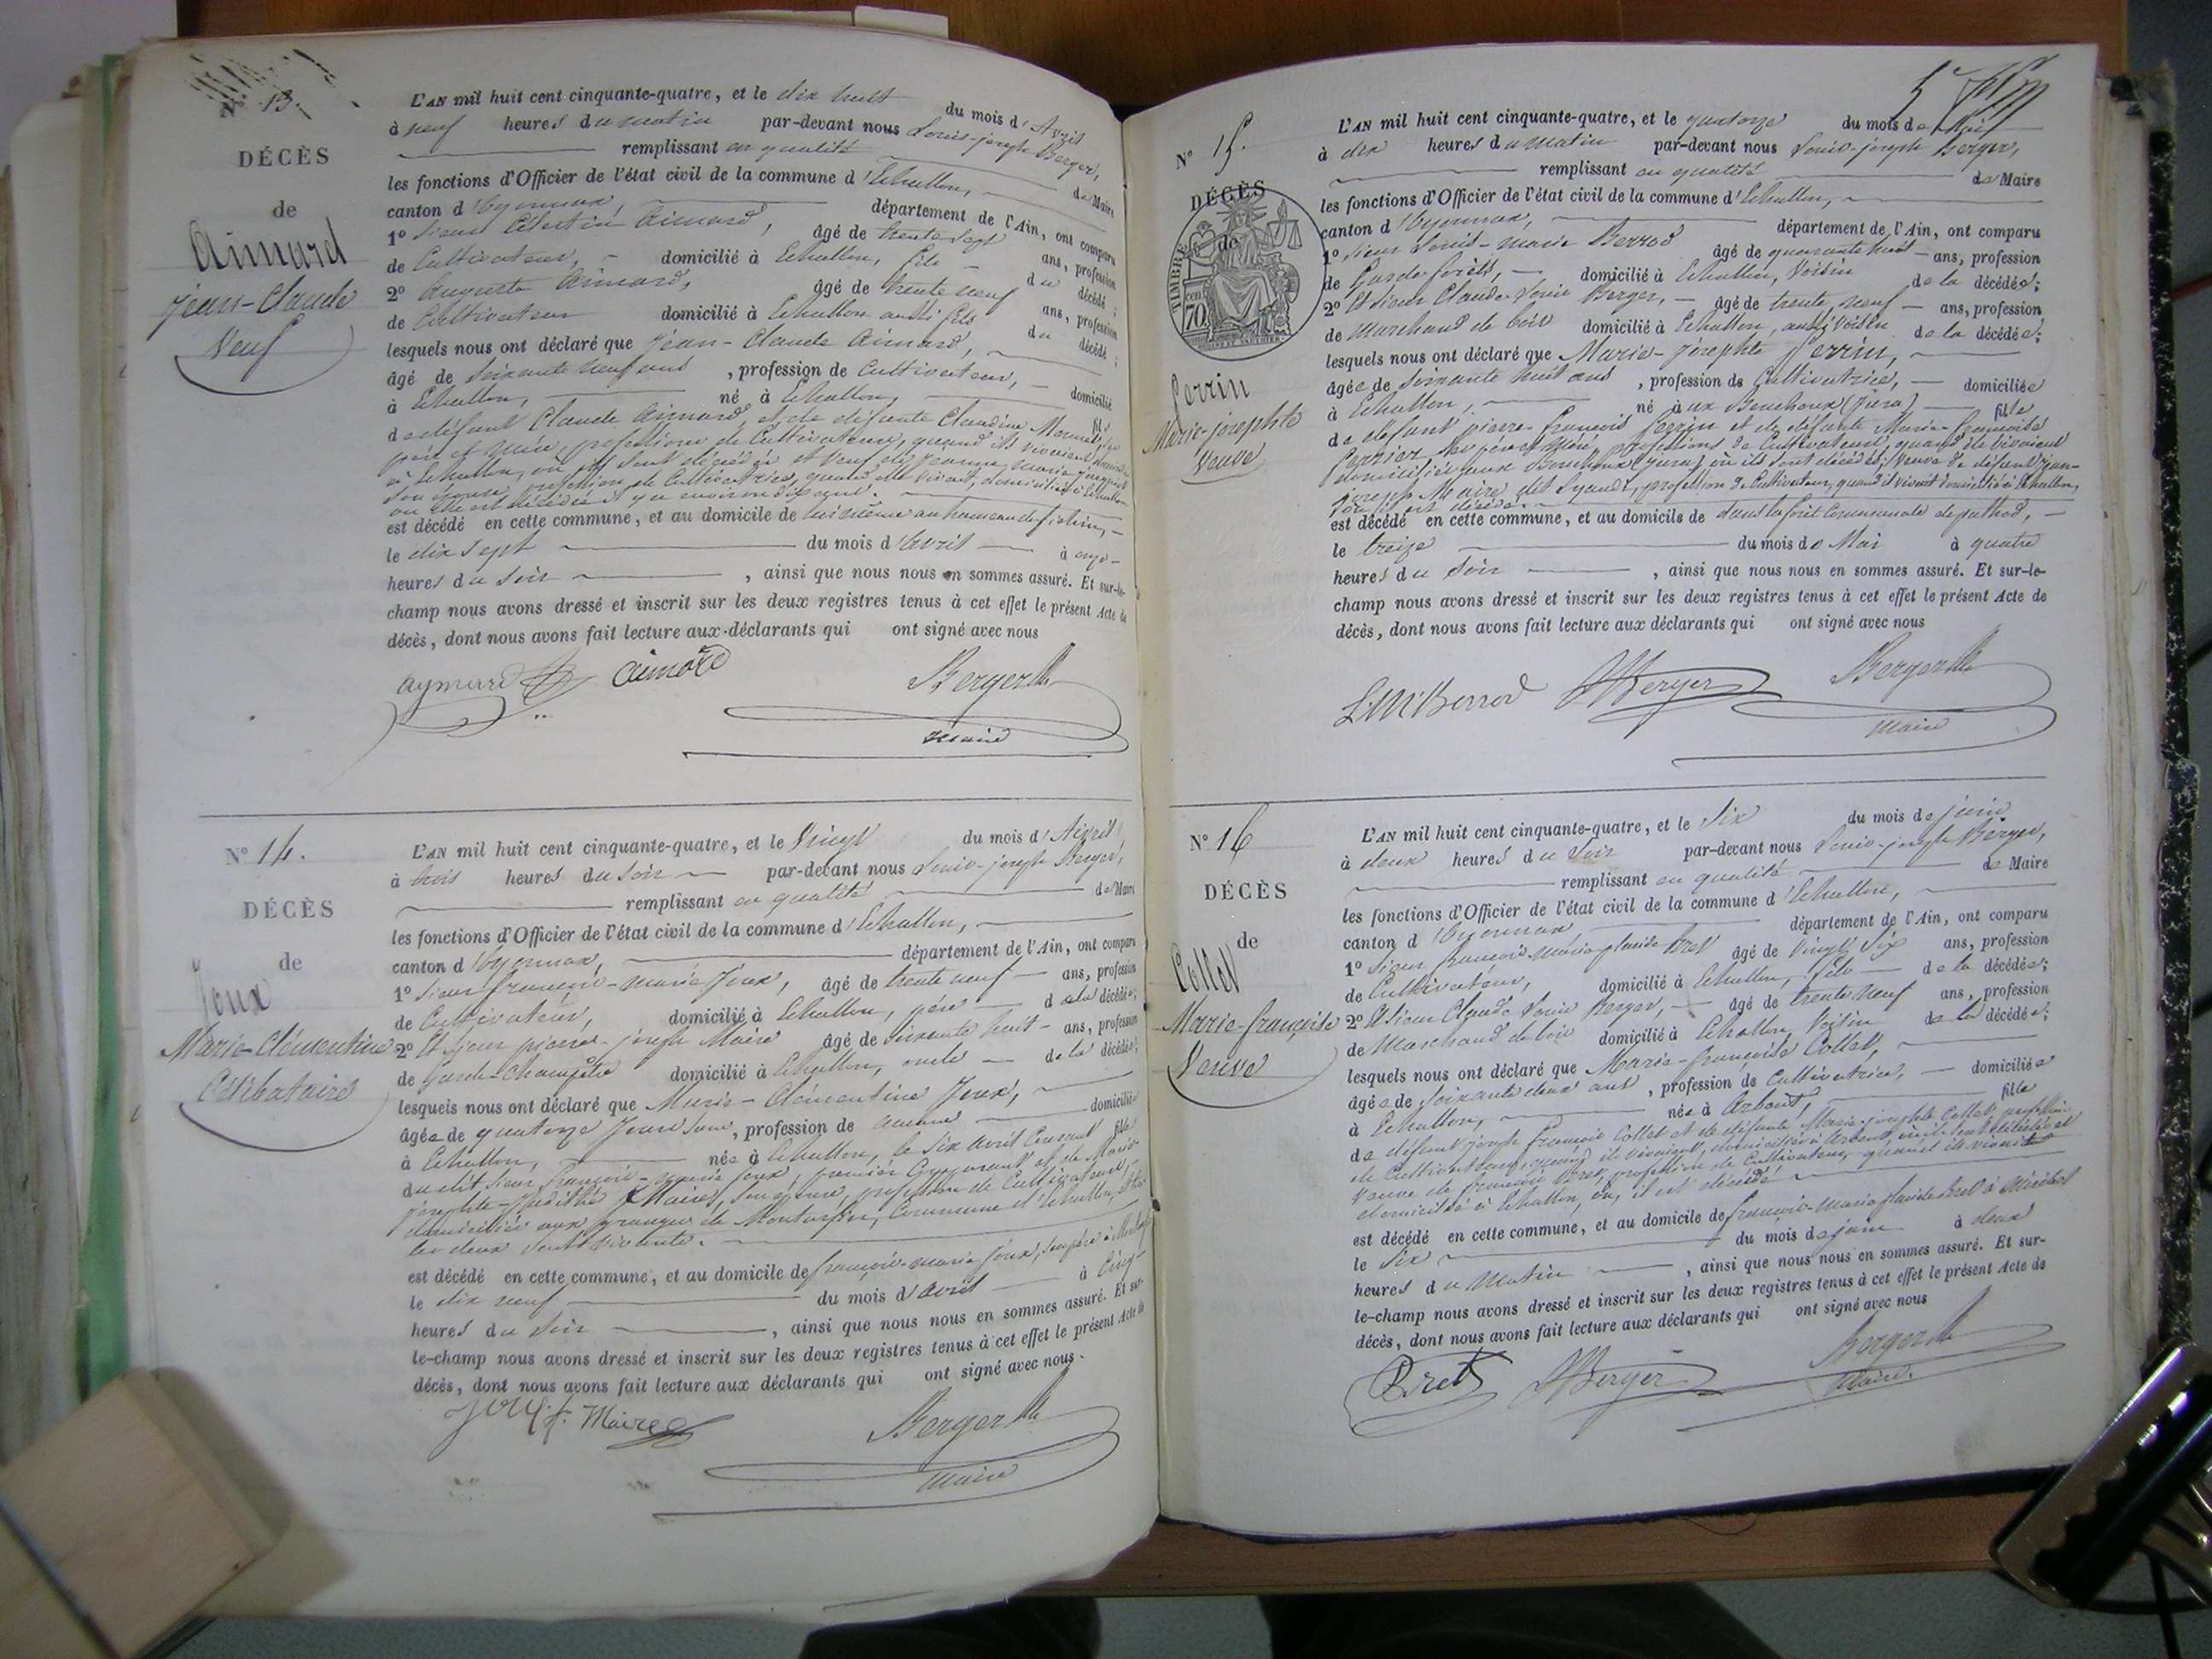 N° 13.
DÉCÈS
de
Aimard
Jean-Claude
Veuf
L'AN mil huit cent cinquante-quatre, et le dix huit du mois d'Avril
à neuf heures du matin par-devant nous Louis-joseph Berger,
remplissant en qualité de Maire
les fonctions d'Officier de l'état civil de la commune d'Echallon,
canton d'Oyonnax, département de l'Ain, ont comparu
1° Sieur Célestin Aimard, âgé de trente sept ans, profession
de Cultivateur, domicilié à Echallon, fils du décédé;
2° Auguste Aimard, âgé de trente neuf ans, profession
de Cultivateur domicilié à Echallon aussi fils du décédé;
lesquels nous ont déclaré que Jean-Claude Aimard,
âgé de Soixante neuf ans, profession de Cultivateur, domicilié
à Echallon, né à Echallon, fils
de défunt Claude Aimard, et de défunte Claudine
père et mère, profession de Cultivateurs, quand ils vivaient
à Echallon, où ils sont décédés et Veuf de Jeanne Marie
son épouse, profession de Cultivatrice, quand elle vivait, domiciliée à Echallon
où elle est décédée il y a environ dix ans.
est décédé en cette commune, et au domicile de lui même au hameau de
le dix sept du mois d'avril à onze
heures du Soir, ainsi que nous nous en sommes assuré. Et sur-le-
champ nous avons dressé et inscrit sur les deux registres tenus à cet effet le présent Acte de
décès, dont nous avons fait lecture aux déclarants qui ont signé avec nous
aymard aimard Berger
Maire
N° 14.
DÉCÈS
de
Joux
Marie-Clémentine
Célibataire
L'AN mil huit cent cinquante-quatre, et le Vingt du mois d'Avril
à trois heures du Soir par-devant nous Louis-joseph Berger,
remplissant en qualité de Maire
les fonctions d'Officier de l'état civil de la commune d'Echallon,
canton d'Oyonnax, département de l'Ain, ont comparu
1° Sieur françois-marie Joux, âgé de trente neuf ans, profession
de Cultivateur, domicilié à Echallon, père de la décédée;
2° Et Sieur pierre-joseph Maire âgé de Soixante huit ans, profession
de garde-champêtre domicilié à Echallon, oncle de la décédée;
lesquels nous ont déclaré que Marie-Clémentine Joux,
âgée de quatorze Jours, profession de aucune domiciliée
à Echallon, née à Echallon, le Six avril Courant fille
du dit Sieur françois-marie Joux, premier Comparant et de Marie
josephte-Judithe Maire, Son épouse, profession de Cultivateurs,
domiciliés aux granges de, Commune d'Echallon,
les deux Sont vivants.
est décédé en cette commune, et au domicile de françois-marie Joux, Son père
le dix neuf du mois d'avril à Cinq
heures du Soir, ainsi que nous nous en sommes assuré. Et sur-
le-champ nous avons dressé et inscrit sur les deux registres tenus à cet effet le présent Acte de
décès, dont nous avons fait lecture aux déclarants qui ont signé avec nous.
Joux f. Maire Berger
Maire
N° 15.
DÉCÈS
de
TIMBRE
cen. 70
Perrin
Marie-josephte
Veuve
L'AN mil huit cent cinquante-quatre, et le quatorze du mois de Mai
à dix heures du Matin par-devant nous Louis-joseph Berger,
remplissant en qualité de Maire
les fonctions d'Officier de l'état civil de la commune d'Echallon,
canton d'Oyonnax, département de l'Ain, ont comparu
1° Sieur Louis-marie Berrod âgé de quarante huit ans, profession
de Garde-forêts, domicilié à Echallon, Voisin de la décédée;
2° Et Sieur Claude-Louis Berger, âgé de trente neuf ans, profession
de Marchand de bois domicilié à Echallon, aussi Voisin de la décédée;
lesquels nous ont déclaré que Marie-josephte Perrin,
âgée de Soixante huit ans, profession de Cultivatrice, domiciliée
à Echallon, né à ux Bouchoux (Jura) fille
de défunt pierre-françois Perrin et de défunte Marie-françoise
Perrier Ses père et Mère, professions de Cultivateurs, quand ils vivaient
domiciliés aux Bouchoux (Jura) où ils sont décédés; Veuve de défunt jean-
joseph Maire, profession de Cultivateur, quand il vivait domicilié à Echallon,
où il est décédé.
est décédé en cette commune, et au domicile de dans la forêt Communale de
le treize du mois de Mai à quatre
heures du Soir, ainsi que nous nous en sommes assuré. Et sur-le-
champ nous avons dressé et inscrit sur les deux registres tenus à cet effet le présent Acte de
décès, dont nous avons fait lecture aux déclarants qui ont signé avec nous
L.M. Berrod Berger Berger
Maire
N° 16
DÉCÈS
de
Collet
Marie-françoise
Veuve
L'AN mil huit cent cinquante-quatre, et le Six du mois de juin
à deux heures du Soir par-devant nous Louis-joseph Berger,
remplissant en qualité de Maire
les fonctions d'Officier de l'état civil de la commune d'Echallon,
canton d'Oyonnax, département de l'Ain, ont comparu
1° Sieur françois-marie-placide Bret âgé de Vingt Six ans, profession
de Cultivateur, domicilié à Echallon, fils de la décédée;
2° Et Sieur Claude Louis Berger, âgé de trente neuf ans, profession
de Marchand de bois domicilié à Echallon, Voisin de la décédée;
lesquels nous ont déclaré que Marie-françoise Collet,
âgée de Soixante deux ans, profession de Cultivatrice, domiciliée
à Echallon, née à Arbent, fille
de défunt joseph françois Collet et de défunte Marie-josephte Collet, profession
de Cultivateurs, quand ils vivaient, domiciliés à Arbent, où ils sont décédés et
Veuve de françois Bret, profession de Cultivateur, quand il vivait
domicilié à Echallon, où, il est décédé
est décédé en cette commune, et au domicile de françois-marie placide Bret à
le Six du mois de juin à deux
heures du Matin, ainsi que nous nous en sommes assuré. Et sur-
le-champ nous avons dressé et inscrit sur les deux registres tenus à cet effet le présent Acte de
décès, dont nous avons fait lecture aux déclarants qui ont signé avec nous
Bret Berger Berger
Maire.